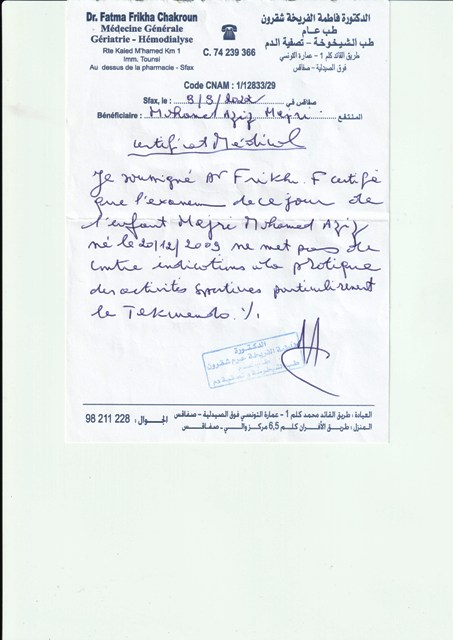 Dr. Fatma Frikha Chakroun
Médecine Générale
Gériatrie - Hémodialyse
Rte Kaied M'hamed Km 1
Imm. Tounsi
Au dessus de la pharmacie - Sfax
C. 74 239 366
الدكتورة فاطمة الفريخة شقرون
طب عـــام
طب الشيخوخة - تصفية الدم
طريق القائد كلم 1 - عمارة التونسي
فوق الصيدلية - صفاقس
Code CNAM : 1/12833/29
Sfax, le : 8/9/2022 صفاقس في
Bénéficiaire : Mohamed Aziz Mejri المنتفع
Certificat Médical
Je soussigné Dr Frikha. F certifie
que l'examen de ce jour de
l'enfant Mejri Mohamed Aziz
né le 20/12/2009 ne met pas de
contre indications à la pratique
des activités sportives particulièrement
le Tekwendo. ./.
الدكتورة
العيادة : طريق القائد محمد كلم 1 - عمارة التونسي فوق الصيدلية - صفاقس
المنزل : طريق الأفران كلم 6,5 مركز والي - صفاقس
الجوال : 98 211 228